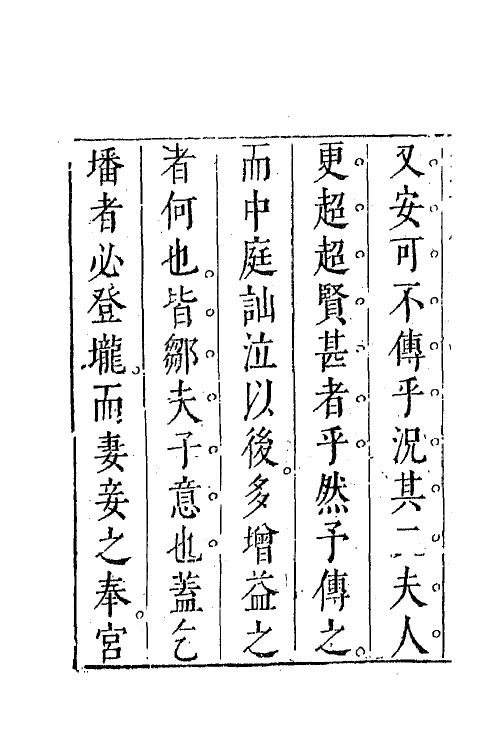 又安可不傳乎況其二夫人
更超超賢甚者乎然予傳之
而中庭訕泣以後多增益之
者何也皆鄒夫子意也蓋乞
墦者必登壠而妻妾之奉宮